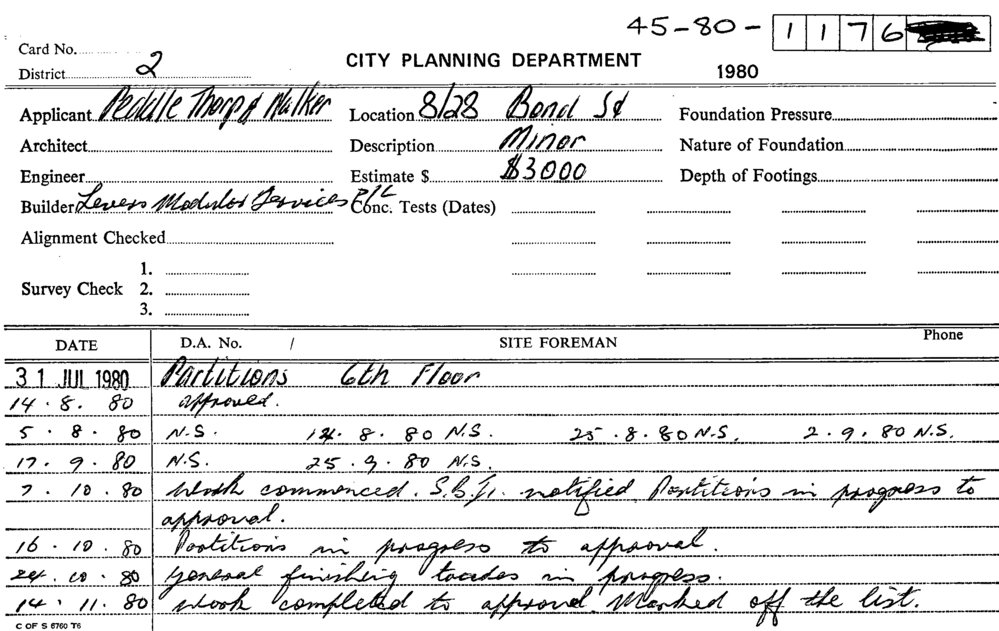 45-80- 1 1 7 6
Card No.
CITY PLANNING DEPARTMENT
District 2
1980
Applicant Peddle Thorp & Walker Location 8/28 Bond St Foundation Pressure
Architect Description Minor Nature of Foundation
Engineer Estimate $ $3000 Depth of Footings
Builder Levers Modular Services P/L Conc. Tests (Dates)
Alignment Checked
1.
Survey Check 2.
3.
DATE D.A. No. / SITE FOREMAN Phone
31 JUL 1980 Partitions 6th Floor
14.8.80 approved.
5.8.80 N.S. 14.8.80 N.S. 25.8.80 N.S. 2.9.80 N.S.
17.9.80 N.S. 25.9.80 N.S.
7.10.80 Work commenced. S.B.I. notified. Partitions in progress to
approval.
16.10.80 Partitions in progress to approval.
24.10.80 General finishing trades in progress.
14.11.80 Work completed to approval. Marked off the list.
C OF S 6760 T6